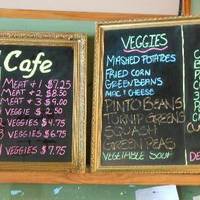 Cafe
MEAT + 1 $7.25
MEAT + 2 $8.50
MEAT + 3 $9.00
VEGGIE $2.50
VEGGIES $4.75
3 VEGGIES $6.75
VEGGIES $7.75
VEGGIES
MASHED POTATOES
FRIED CORN
GREEN BEANS
MAC & CHEESE
PINTO BEANS
TURNIP GREENS
SQUASH
GREEN PEAS
VEGETABLE SOUP